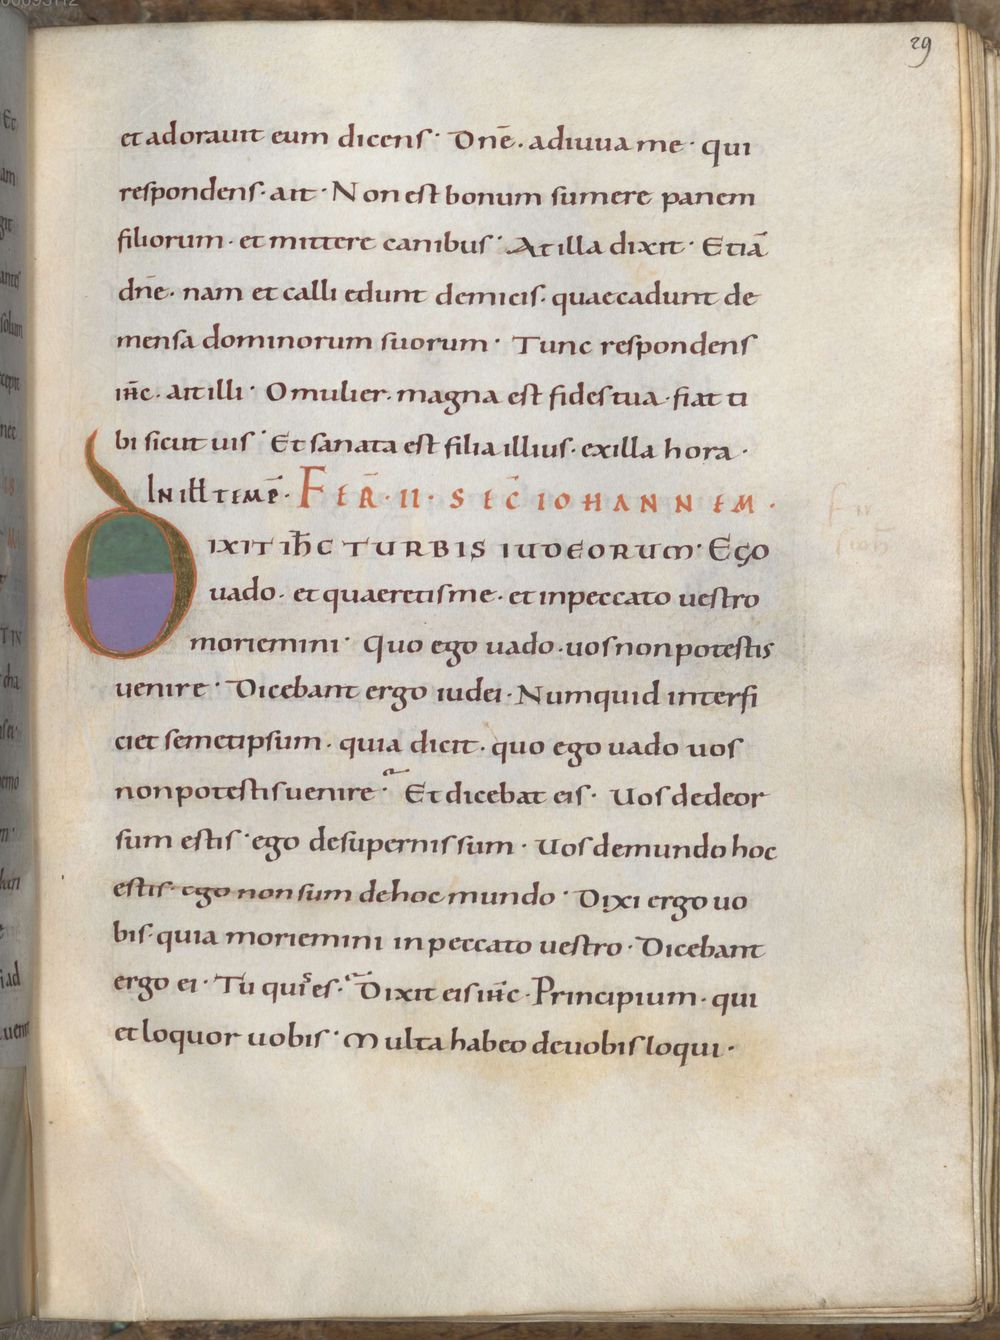 29
et adorauit eum dicens· Dnē. adiuua me· qui
respondens· ait· Non est bonum sumere panem
filiorum· et mittere canibus· At illa dixit· Etiā
dnē· nam et catelli edunt de micis· quae cadunt de
mensa dominorum suorum· Tunc respondens
ihc̄· ait illi· O mulier· magna est fides tua· fiat ti
bi sicut uis· Et sanata est filia illius· ex illa hora·
IN ILL TEMP̄· FER̄· II· SEC̄ IOHANNEM·
DIXIT IHC̄ TURBIS IUDEORUM· Ego
uado· et quaeretis me· et in peccato uestro
moriemini· Quo ego uado· uos non potestis
uenire· Dicebant ergo iudei· Numquid interfi
ciet semetipsum· quia dicit· quo ego uado uos
non potestis uenire· Et dicebat eis· Uos de deor
sum estis· ego de supernis sum· Uos de mundo hoc
estis· ego non sum de hoc mundo· Dixi ergo uo
bis· quia moriemini in peccato uestro· Dicebant
ergo ei· Tu quis es· Dixit eis ihc̄· Principium· qui
et loquor uobis· Multa habeo de uobis loqui·